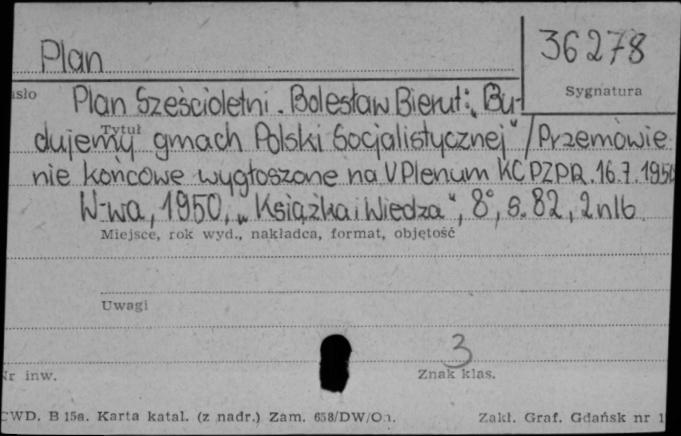 Plan
36278
Sygnatura
Plan Sześcioletni. Bolesław Bierut: „Bu-
dujemy gmach Polski Socjalistycznej" / Przemówie
Tytuł
nie końcowe wygłoszone na V Plenum KC PZPR. 16.7.1950
W-wa, 1950, „Książka i Wiedza", 8°, s. 82, 2 nlb
Miejsce, rok wyd., nakładca, format, objętość
Uwagi
3
Nr inw.
Znak klas.
CWD. B 15a. Karta katal. (z nadr.) Zam. 658/DW/O
Zakł. Graf. Gdańsk nr 1